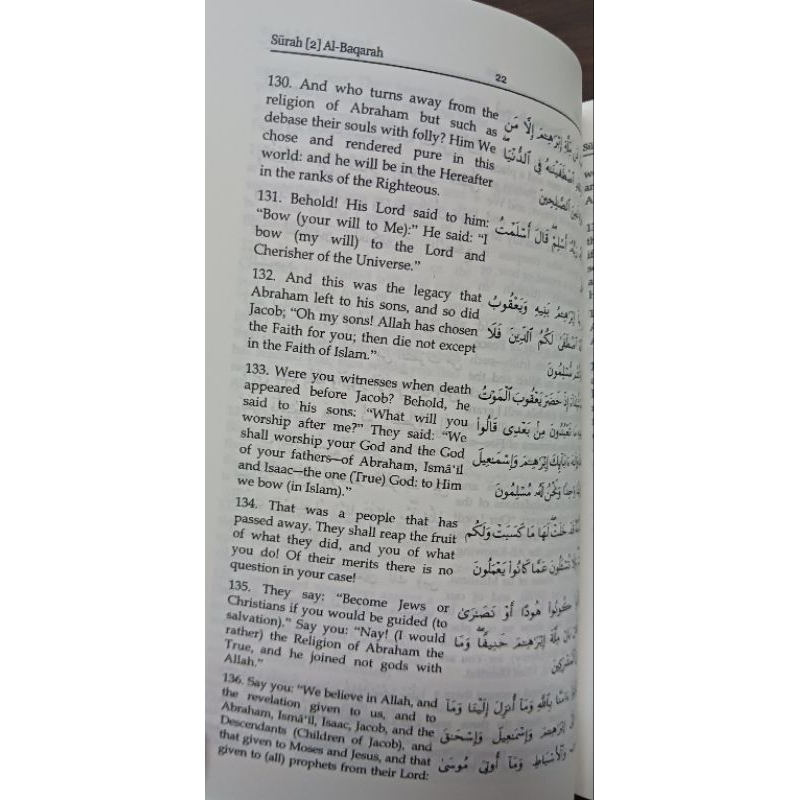 Sūrah [2] Al-Baqarah
22
130. And who turns away from the
religion of Abraham but such as
debase their souls with folly? Him We
chose and rendered pure in this
world: and he will be in the Hereafter
in the ranks of the Righteous.
131. Behold! His Lord said to him:
“Bow (your will to Me):” He said: “I
bow (my will) to the Lord and
Cherisher of the Universe.”
132. And this was the legacy that
Abraham left to his sons, and so did
Jacob; “Oh my sons! Allah has chosen
the Faith for you; then die not except
in the Faith of Islam.”
133. Were you witnesses when death
appeared before Jacob? Behold, he
said to his sons: “What will you
worship after me?” They said: “We
shall worship your God and the God
of your fathers—of Abraham, Ismā‘il
and Isaac—the one (True) God: to Him
we bow (in Islam).”
134. That was a people that has
passed away. They shall reap the fruit
of what they did, and you of what
you do! Of their merits there is no
question in your case!
135. They say: “Become Jews or
Christians if you would be guided (to
salvation).” Say you: “Nay! (I would
rather) the Religion of Abraham the
True, and he joined not gods with
Allah.”
136. Say you: “We believe in Allah, and
the revelation given to us, and to
Abraham, Ismā‘il, Isaac, Jacob, and the
Descendants (Children of Jacob), and
that given to Moses and Jesus, and that
given to (all) prophets from their Lord:
مِّلَّةِ إِبْرَٰهِـۧمَ إِلَّا مَن
ٱصْطَفَيْنَـٰهُ فِى ٱلدُّنْيَا ۖ
ٱلصَّـٰلِحِينَ
أَسْلِمْ ۖ قَالَ أَسْلَمْتُ
إِبْرَٰهِـۧمُ بَنِيهِ وَيَعْقُوبُ
ٱصْطَفَىٰ لَكُمُ ٱلدِّينَ فَلَا
مُّسْلِمُونَ
إِذْ حَضَرَ يَعْقُوبَ ٱلْمَوْتُ
مَا تَعْبُدُونَ مِنۢ بَعْدِى قَالُوا۟
ءَابَآئِكَ إِبْرَٰهِـۧمَ وَإِسْمَـٰعِيلَ
وَٰحِدًا وَنَحْنُ لَهُۥ مُسْلِمُونَ
قَدْ خَلَتْ ۖ لَهَا مَا كَسَبَتْ وَلَكُم
تُسْـَٔلُونَ عَمَّا كَانُوا۟ يَعْمَلُونَ
كُونُوا۟ هُودًا أَوْ نَصَـٰرَىٰ
بَلْ مِلَّةَ إِبْرَٰهِـۧمَ حَنِيفًا ۖ وَمَا
ٱلْمُشْرِكِينَ
بِٱللَّهِ وَمَآ أُنزِلَ إِلَيْنَا وَمَآ
إِبْرَٰهِـۧمَ وَإِسْمَـٰعِيلَ وَإِسْحَـٰقَ
وَٱلْأَسْبَاطِ وَمَآ أُوتِىَ مُوسَىٰ